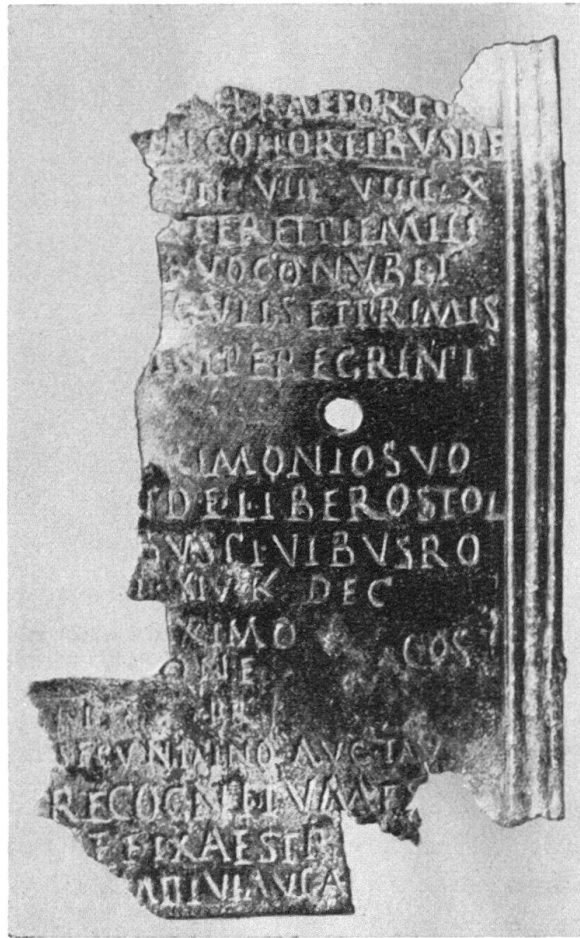 RAETORIO
IN COHORTIBVS DE
VII · VIIII · X
TER ET PIE MILI
BVO CONVBII
GVLIS ET PRIMIS
SI PEREGRINI
RIMONIO SVO
DE LIBEROS TOL
BVS CIVIBVS RO
XIV K DEC
XIMO COS
ONE
RECOGNIT VM
FIXA EST R
DIVI AVG A